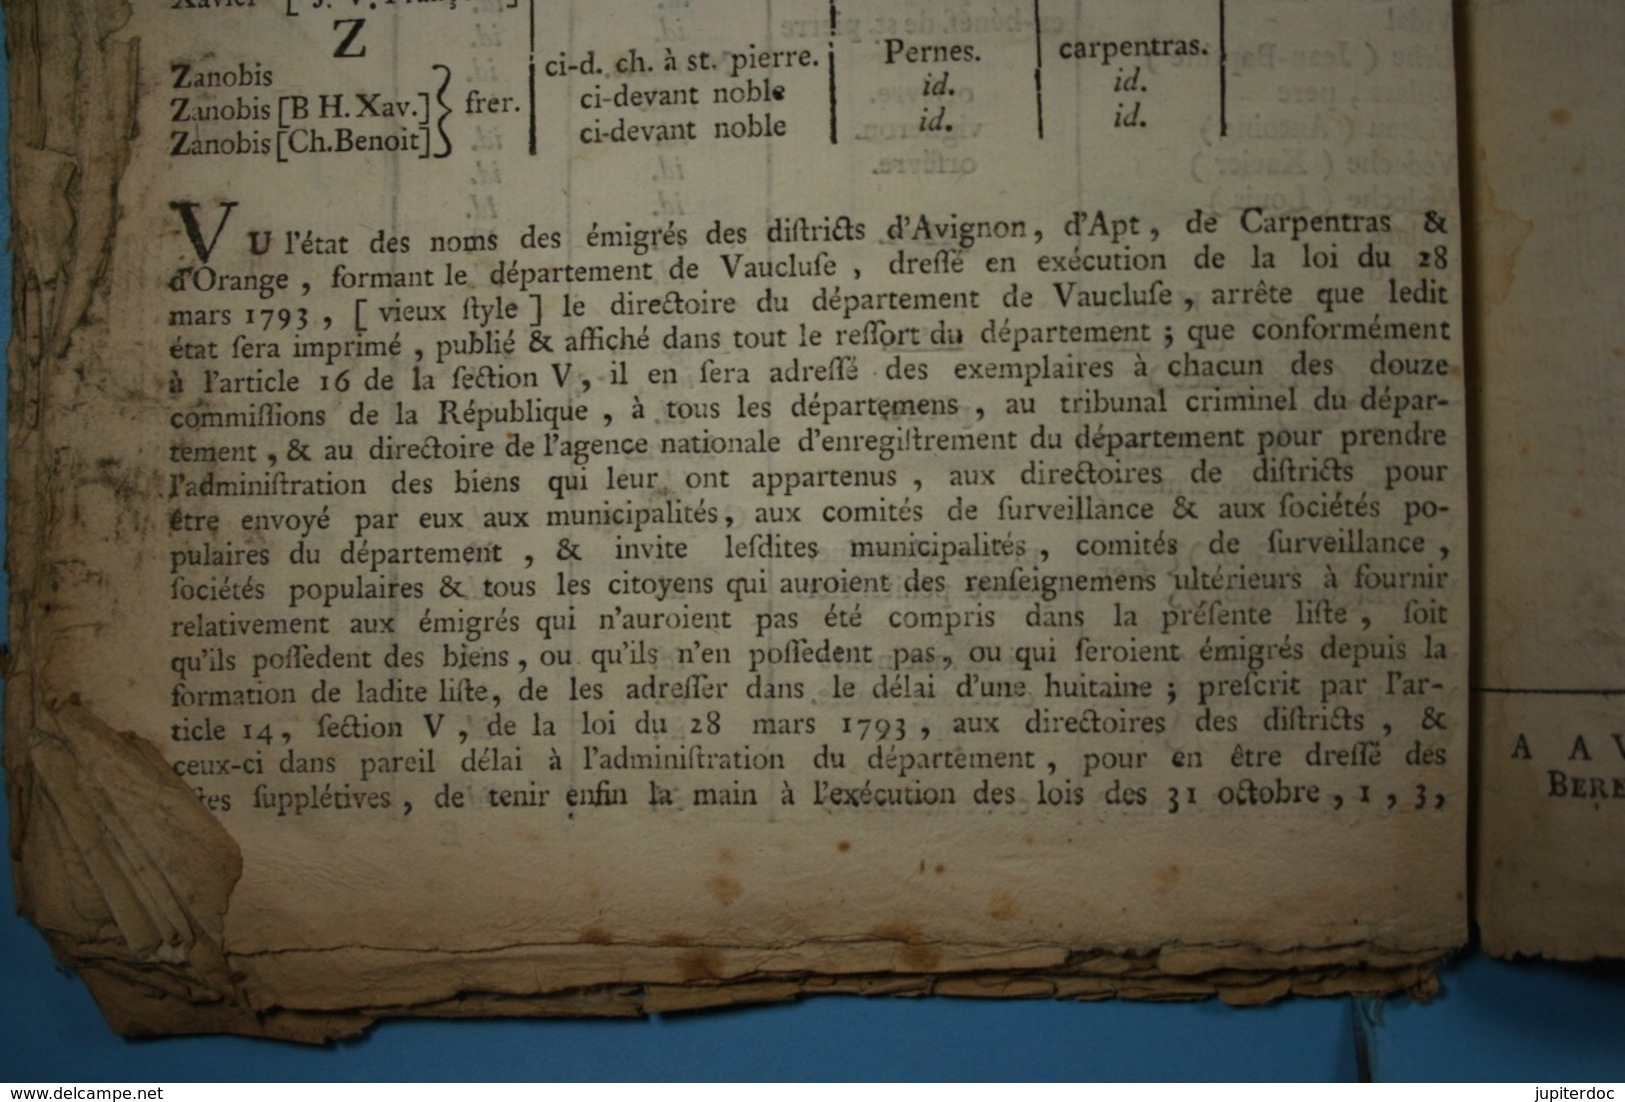 Z
Zanobis ci-d. ch. à st. pierre. Pernes. carpentras.
Zanobis [B H. Xav.] } frer. ci-devant noble id. id.
Zanobis [Ch. Benoit] ci-devant noble id. id.
VU l'état des noms des émigrés des diſtricts d'Avignon, d'Apt, de Carpentras &
d'Orange, formant le département de Vaucluſe, dreſſé en exécution de la loi du 28
mars 1793, [ vieux ſtyle ] le directoire du département de Vaucluſe, arrête que ledit
état ſera imprimé, publié & affiché dans tout le reſſort du département ; que conformément
à l'article 16 de la ſection V, il en ſera adreſſé des exemplaires à chacun des douze
commiſſions de la République, à tous les départemens, au tribunal criminel du dépar-
tement, & au directoire de l'agence nationale d'enregiſtrement du département pour prendre
l'adminiſtration des biens qui leur ont appartenus, aux directoires de diſtricts pour
être envoyé par eux aux municipalités, aux comités de ſurveillance & aux ſociétés po-
pulaires du département, & invite leſdites municipalités, comités de ſurveillance,
ſociétés populaires & tous les citoyens qui auroient des renſeignemens ultérieurs à fournir
relativement aux émigrés qui n'auroient pas été compris dans la préſente liſte, ſoit
qu'ils poſſedent des biens, ou qu'ils n'en poſſedent pas, ou qui ſeroient émigrés depuis la
formation de ladite liſte, de les adreſſer dans le délai d'une huitaine ; preſcrit par l'ar-
ticle 14, ſection V, de la loi du 28 mars 1793, aux directoires des diſtricts, &
ceux-ci dans pareil délai à l'adminiſtration du département, pour en être dreſſé des
ſtes ſupplétives, de tenir enfin la main à l'exécution des lois des 31 octobre, 1, 3,
A AV
BERE
http://www.delcampe.net
jupiterdoc